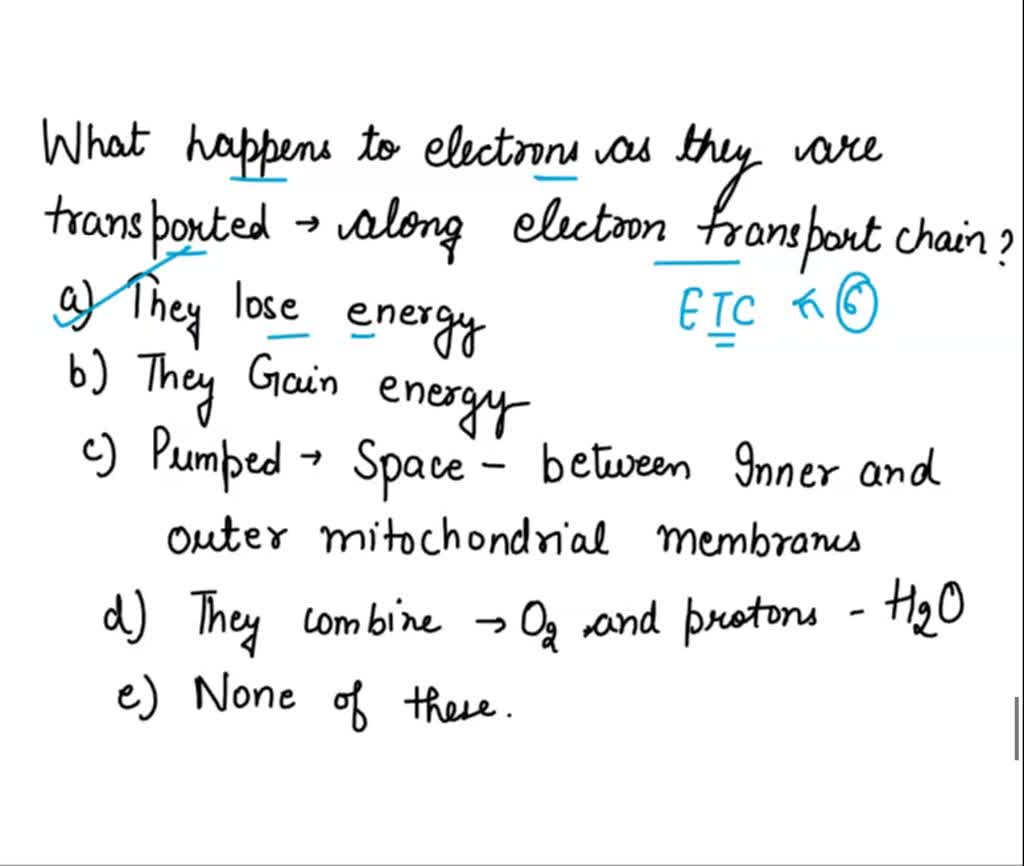 What happens to electrons as they are
transported → along electron transport chain?
a) They lose energy
ETC
b) They Gain energy
c) Pumped → Space - between Inner and
outer mitochondrial membranes
d) They combine → O2 and protons - H2O
e) None of these.